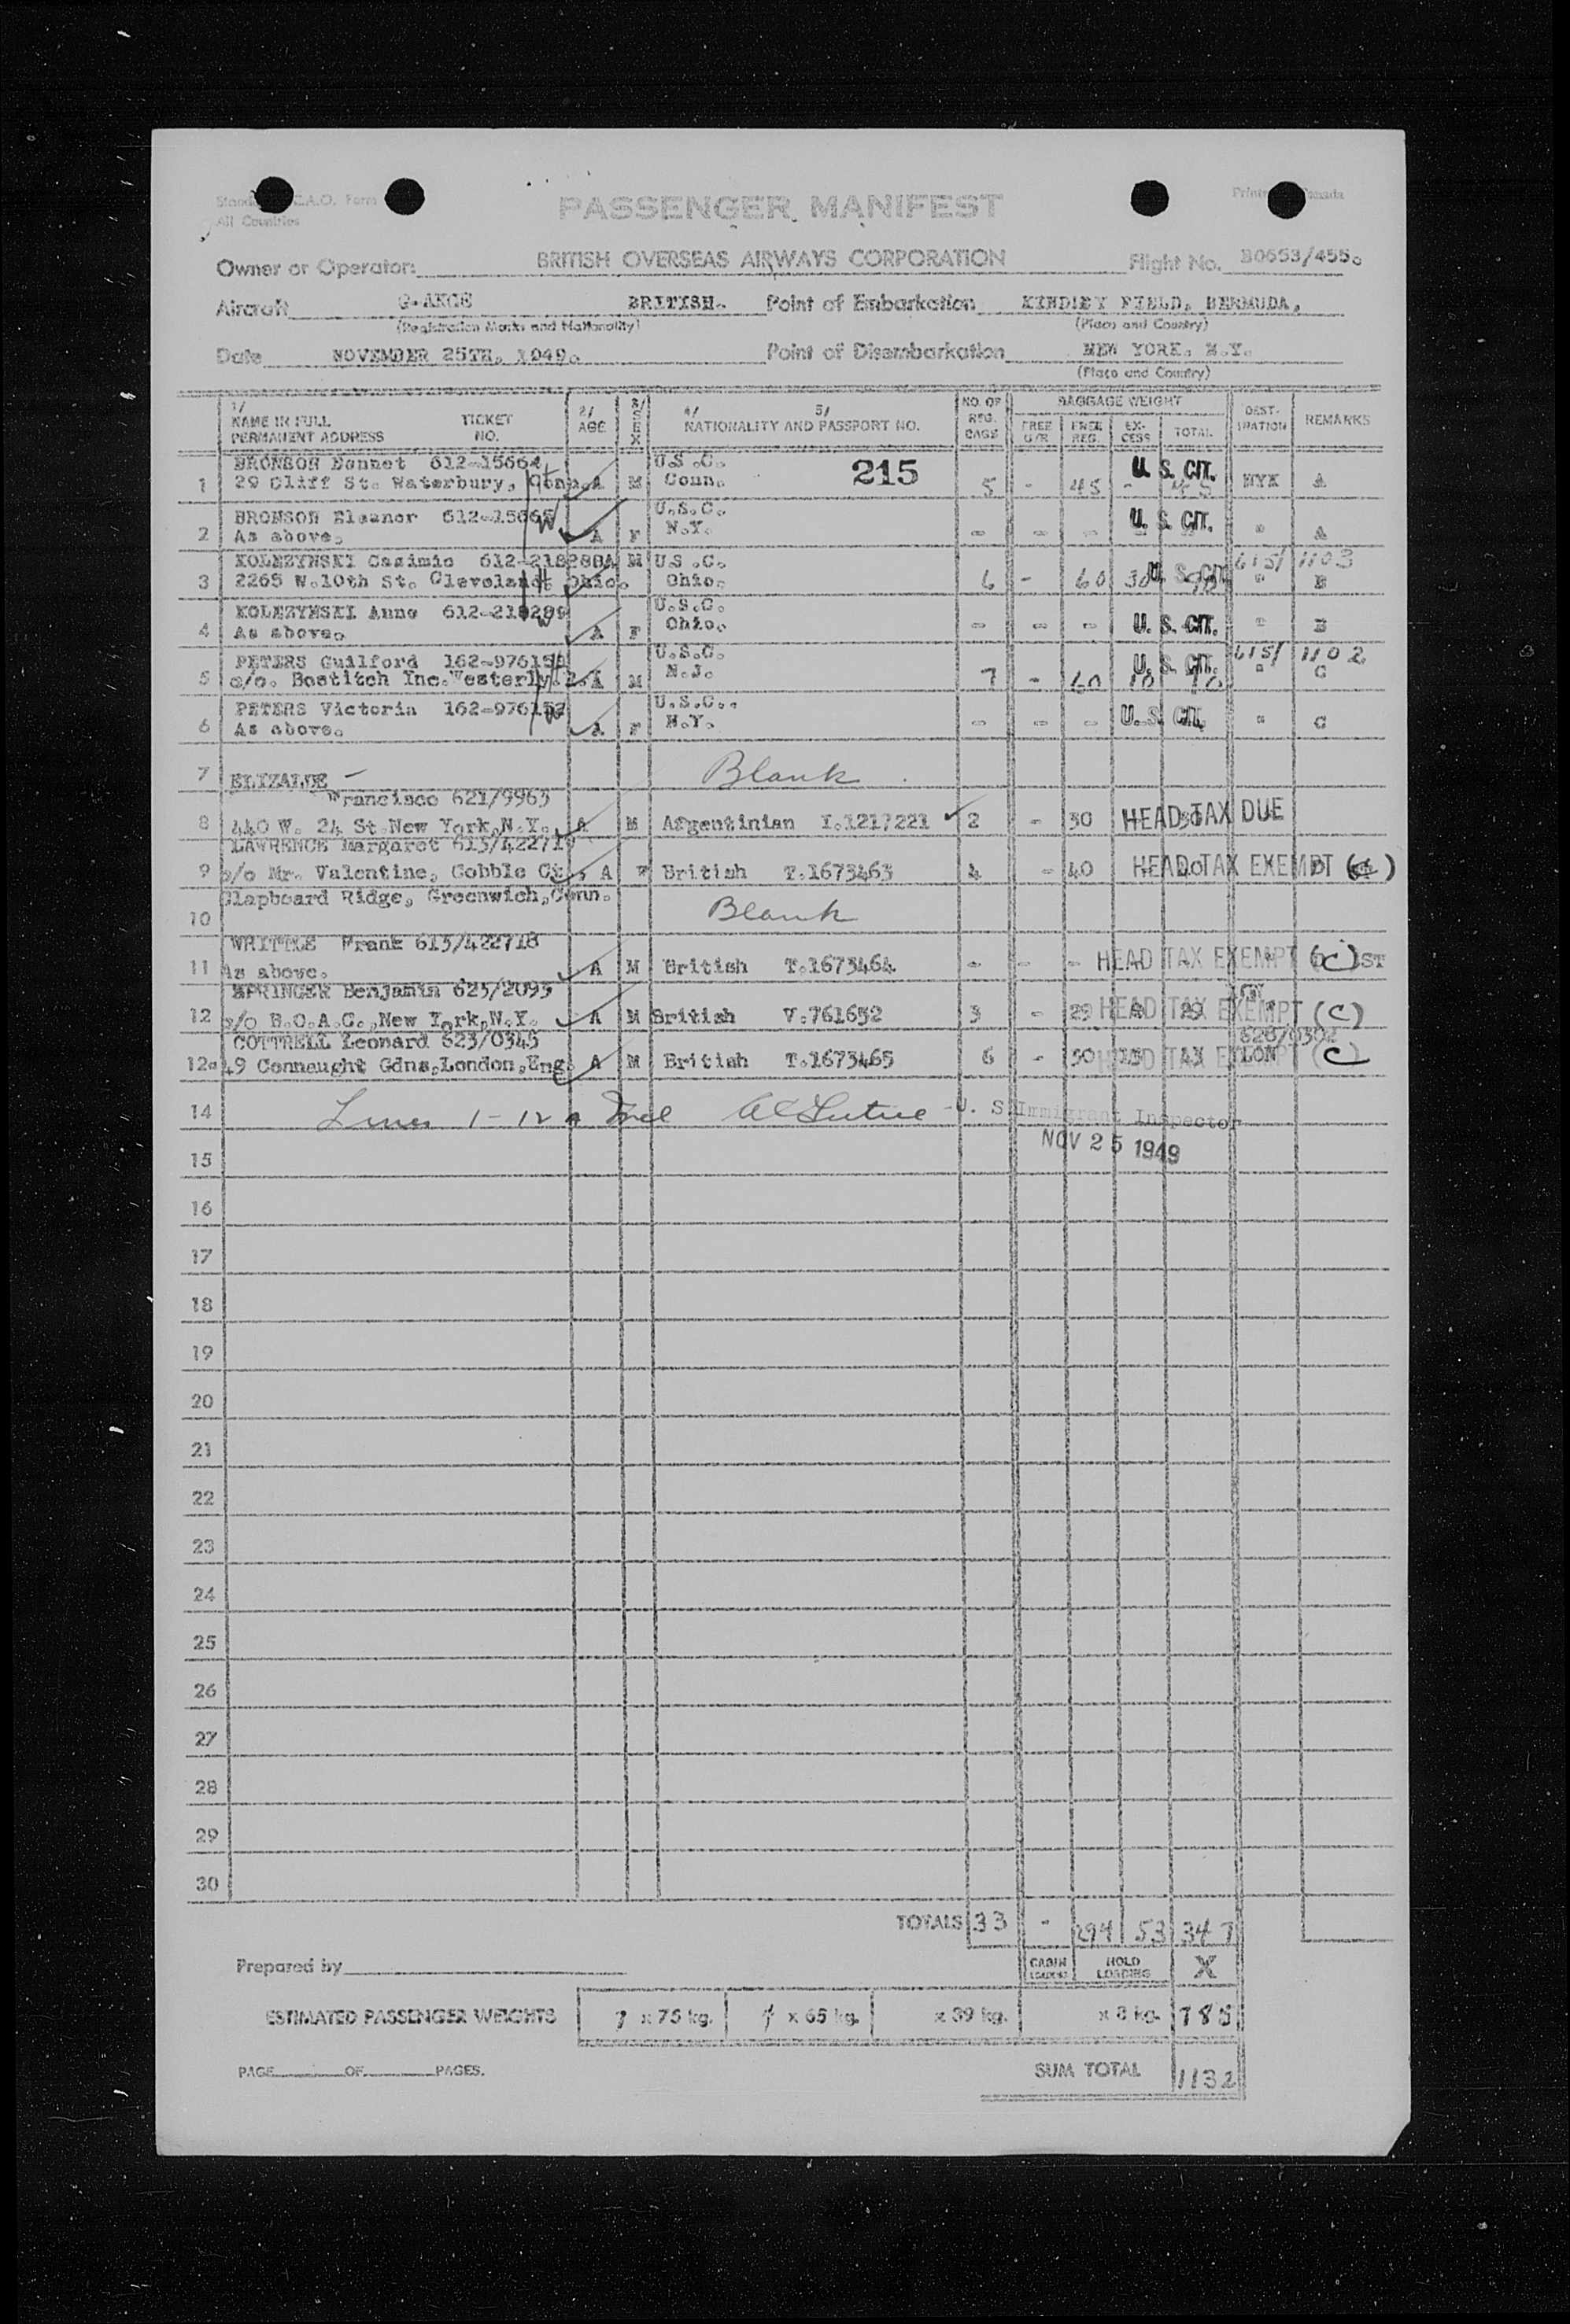 All Countries
PASSENGER MANIFEST
Owner or Operator: BRITISH OVERSEAS AIRWAYS CORPORATION Flight No. B0653/455.
Aircraft BRITISH. Point of Embarkation KINDLEY FIELD, BERMUDA,
(Registration Marks and Nationality) (Place and Country)
Date NOVEMBER 25TH, 1949. Point of Disembarkation NEW YORK. N.Y.
(Place and Country)
1/ NAME IN FULL PERMANENT ADDRESS TICKET NO. 2/ AGE 3/ SEX 4/ 5/ NATIONALITY AND PASSPORT NO. NO. OF REG. BAGE BAGGAGE WEIGHT FREE FREE REG. EXCESS TOTAL DESTINATION REMARKS
BRONSON 612-15664 U.S.C.
1 29 Cliff St. Waterbury, Conn. A M Conn. 215 5 - 45 - 45 U. S. CIT. NYK A
BRONSON Eleanor 612-15665 U.S.C.
2 As above. A F N.Y. - - - U. S. CIT. " A
KOLEZYNSKI Casimic 612-218288 A M U.S.C. 6151 1103
3 2265 W.10th St. Cleveland, Ohio. Ohio. 6 - 60 30 90 U. S. CIT. " B
KOLEZYNSKI Anne 612-218289 U.S.C.
4 As above. A F Ohio. - - - U. S. CIT. " B
PETERS Guilford 162-976156 U.S.C. 6151 1102
5 c/o. Bostitch Inc. Westerly A M N.J. 7 - 60 10 70 U. S. CIT. " C
PETERS Victoria 162-976157 U.S.C.
6 As above. A F N.Y. - - - U. S. CIT. " C
7 ELIZALDE - Blank
Francisco 621/9963
8 440 W. 24 St.New York,N.Y. A M Argentinian I.1217221 2 - 30 HEAD TAX DUE
LAWRENCE Margaret 613/422719
9 c/o Mr. Valentine, Cobble Ct., A F British T.1673463 4 - 40 HEAD TAX EXEMPT
Clapboard Ridge, Greenwich,Conn.
10 Blank
WHITTLE Frank 613/422718
11 As above. A M British T.1673464 - - - HEAD TAX EXEMPT (C) ST
SPRINGER Benjamin 625/2093
12 c/o B.O.A.C.,New York,N.Y. A M British V.761652 3 - 29 29 HEAD TAX EXEMPT (C)
COTTRELL Leonard 623/0345 626/0302
12a 49 Connaught Gdns,London,Eng. A M British T.1673465 6 - 30 13 HEAD TAX EXEMPT LON (C)
14 Lines 1-12a Incl U. S Immigrant Inspector
NOV 25 1949
15
16
17
18
19
20
21
22
23
24
25
26
27
28
29
30
TOTALS 33 - 294 53 347
Prepared by CABIN LOADING HOLD LOADING X
ESTIMATED PASSENGER WEIGHTS 7 x 75 kg. 4 x 65 kg. x 39 kg. x 8 kg. 785
PAGE OF PAGES. SUM TOTAL 1132